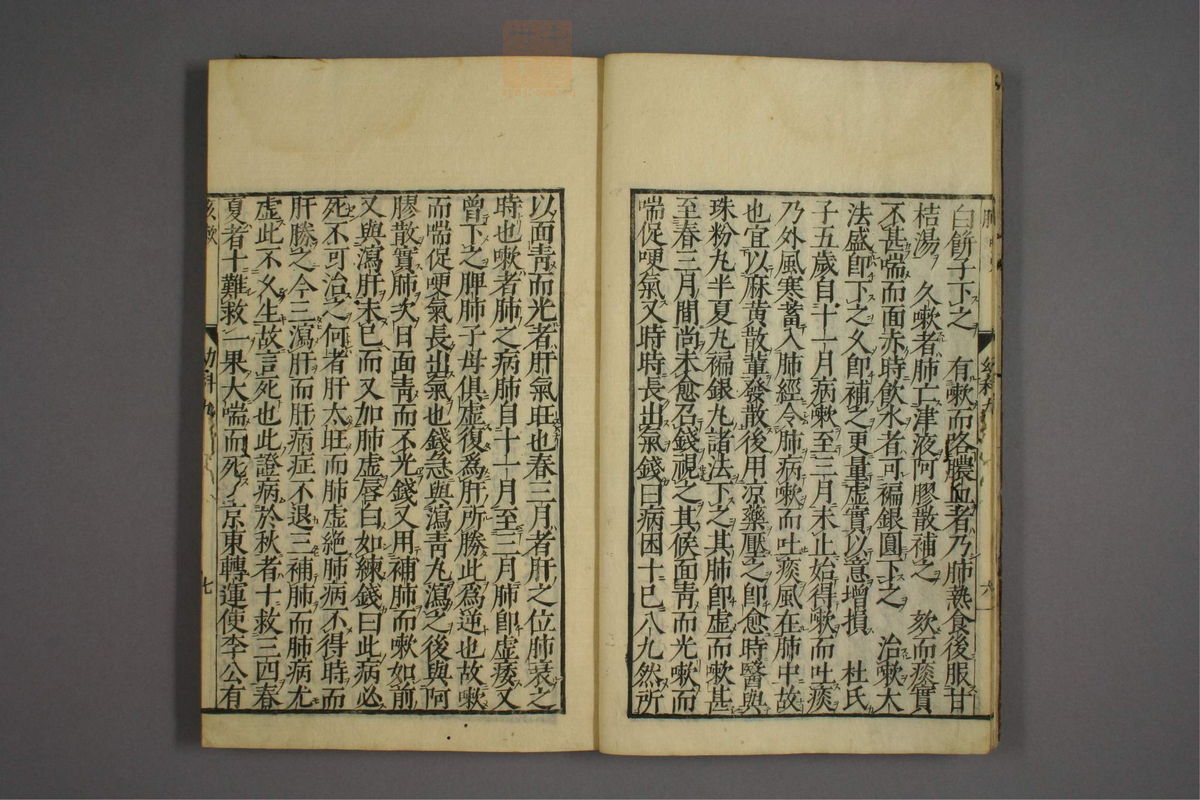 白餅子下之　有嗽而咯膿血者乃肺熱食後服甘
桔湯　久嗽者肺亡津液阿膠散補之　欬而痰實
不甚喘而面赤時飲水者可褊銀圓下之　治嗽大
法盛卽下之久卽補之更量虛實以意增損　杜氏
子五歲自十一月病嗽至三月未止始得嗽而吐痰
乃外風寒蓄入肺經令肺病嗽而吐痰風在肺中故
也宜以麻黃散輩發散後用凉藥壓之卽愈時醫與
珠粉丸半夏丸褊銀丸諸法下之其肺卽虛而嗽甚
至春三月間尚未愈召錢視之其候面靑而光嗽而
喘促哽氣又時時長出氣錢曰病困十已八九然所
幼科
六
以面靑而光者肝氣旺也春三月者肝之位肺衰之
時也嗽者肺之病肺自十一月至三月肺卽虛痿又
曾下之脾肺子母俱虛復爲肝所勝此爲逆也故嗽
而喘促哽氣長出氣也錢急與瀉靑丸瀉之後與阿
膠散實肺次日面靑而不光錢又用補肺而嗽如前
又與瀉肝未已而又加肺虛唇白如練錢曰此病必
死不可治之何者肝太旺而肺虛絶肺病不得時而
肝勝之今三瀉肝而肝病症不退三補肺而肺病尤
虛此不久生故言死也此證病於秋者十救三四春
夏者十難救一果大喘而死　京東轉運使李公有
咳嗽
幼科九
七